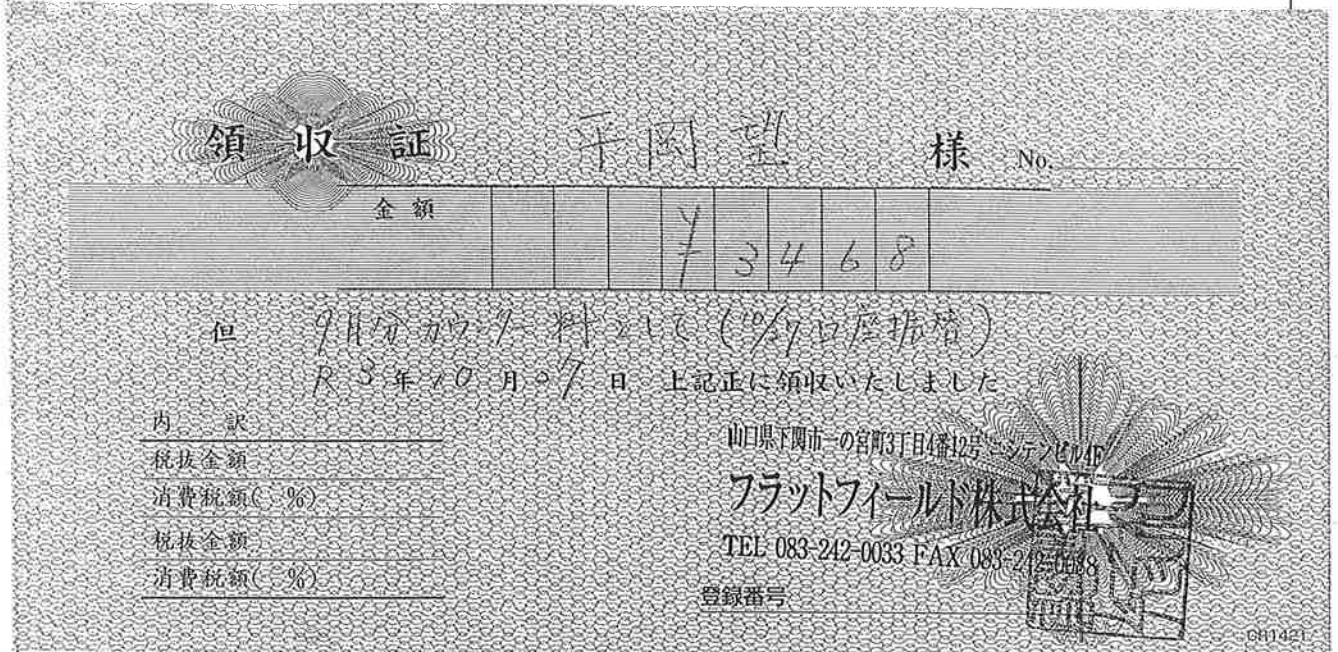 領収証 平岡望 様 No.
金額 ¥3468
但 9月分カウンター料として(10/27口座振替)
R3年10月27日 上記正に領収いたしました
内訳
税抜金額
消費税額( %)
税抜金額
消費税額( %)
山口県下関市一の宮町3丁目4番12号 ニシテンビル4F
フラットフィールド株式会社
TEL 083-242-0033 FAX 083-242-0038
登録番号